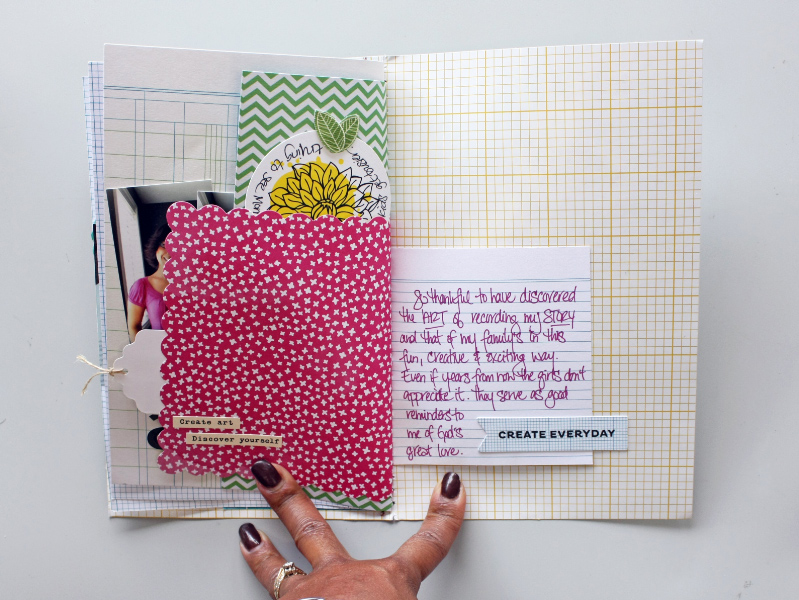 trying to see Mom
kids
Create art
Discover yourself
So thankful to have discovered
the ART of recording my STORY
and that of my family's in this
fun, creative & exciting way.
Even if years from now the girls don't
appreciate it. They serve as good
reminders to
me of God's
great love.
CREATE EVERYDAY